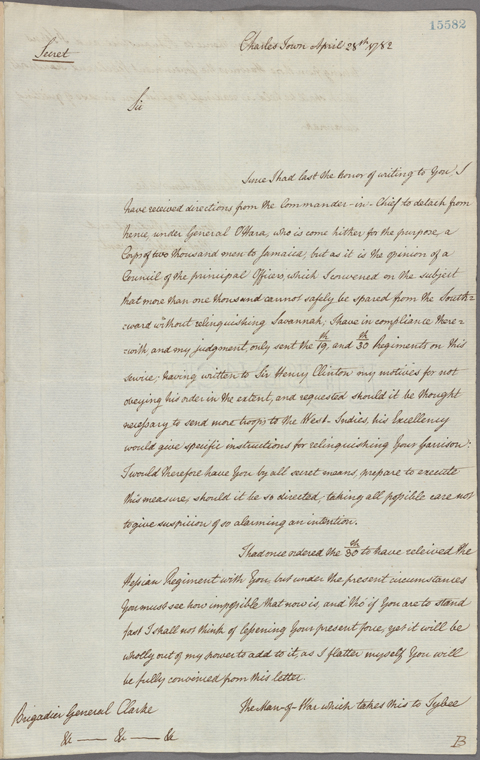 15582
Secret
Charles Town April 28th 1782
Sir
Since I had last the honor of writing to You, I
have received directions from the Commander-in-Chief to detach from
hence under General O'Hara, who is come hither for the purpose, a
Corps of two thousand men to Jamaica; but as it is the opinion of a
Council of the principal Officers, which I convened on the subject
that more than one thousand cannot safely be spared from the South=
=ward without relinquishing Savannah; I have in compliance there=
=with, and my judgment, only sent the 19th, and 30th Regiments on this
service, having written to Sir Henry Clinton my motives for not
obeying his order in the extent, and requested should it be thought
necessary to send more troops to the West-Indies, his Excellency
would give specific instructions for relinquishing Your Garrison:
I would therefore have You by all secret means, prepare to execute
this measure, should it be so directed, taking all possible care not
to give suspicion of so alarming an intention.
I had once ordered the 30th to have releived the
Hessian Regiment with You, but under the present circumstances
You must see how impossible that now is, and tho' if You are to stand
fast I shall not think of lessening Your present force, yet it will be
wholly out of my power to add to it, as I flatter myself You will
be fully convinced from this letter.
The Man-of-War which takes this to Tybee
Brigadier General Clarke
&c —— &c —— &c
B